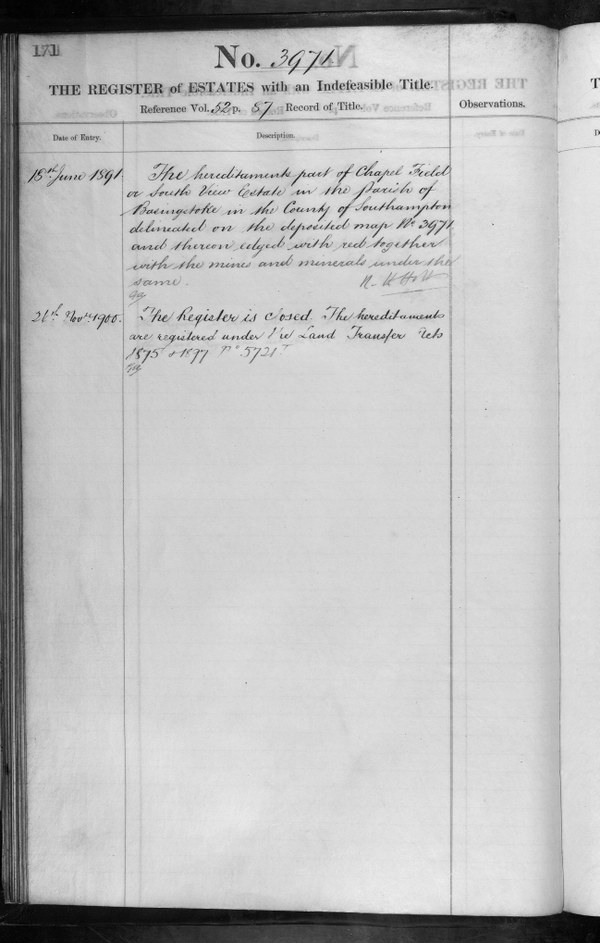 171
No. 3971
THE REGISTER of ESTATES with an Indefeasible Title.
Reference Vol. 52 p. 87 Record of Title.
Observations.
Date of Entry.
Description.
15th June 1891
The hereditaments part of Chapel Field
or South View Estate in the Parish of
Basingstoke in the County of Southampton
delineated on the deposited map No 3971
and thereon edged with red together
with the mines and minerals under the
same.
Nov 1900.
The Register is closed. The hereditaments
are registered under the Land Transfer Acts
1875 & 1897 No 5721